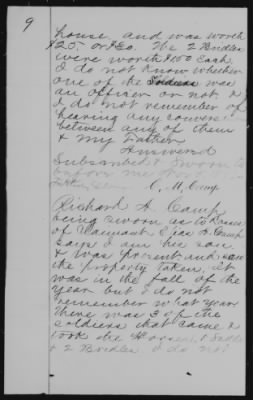 9
house, and was worth
$25. or $30. The 2 Bridles
were worth $1.00 each.
I do not know whether
one of the Soldiers was
an officer or not. &
I do not remember of
hearing any convers
between any of them
& my Father
Answered
Subscribed & Sworn to
before me
C. M. Camp
Richard A. Camp
being sworn as to
of Claimant Camp
Says I am his son.
& was present and saw
the property taken, it
was in the fall of the
year but I do not
remember what year
There was 3 of the
soldiers that came &
took the Horse, 1 Saddle
& 2 Bridles. I do not